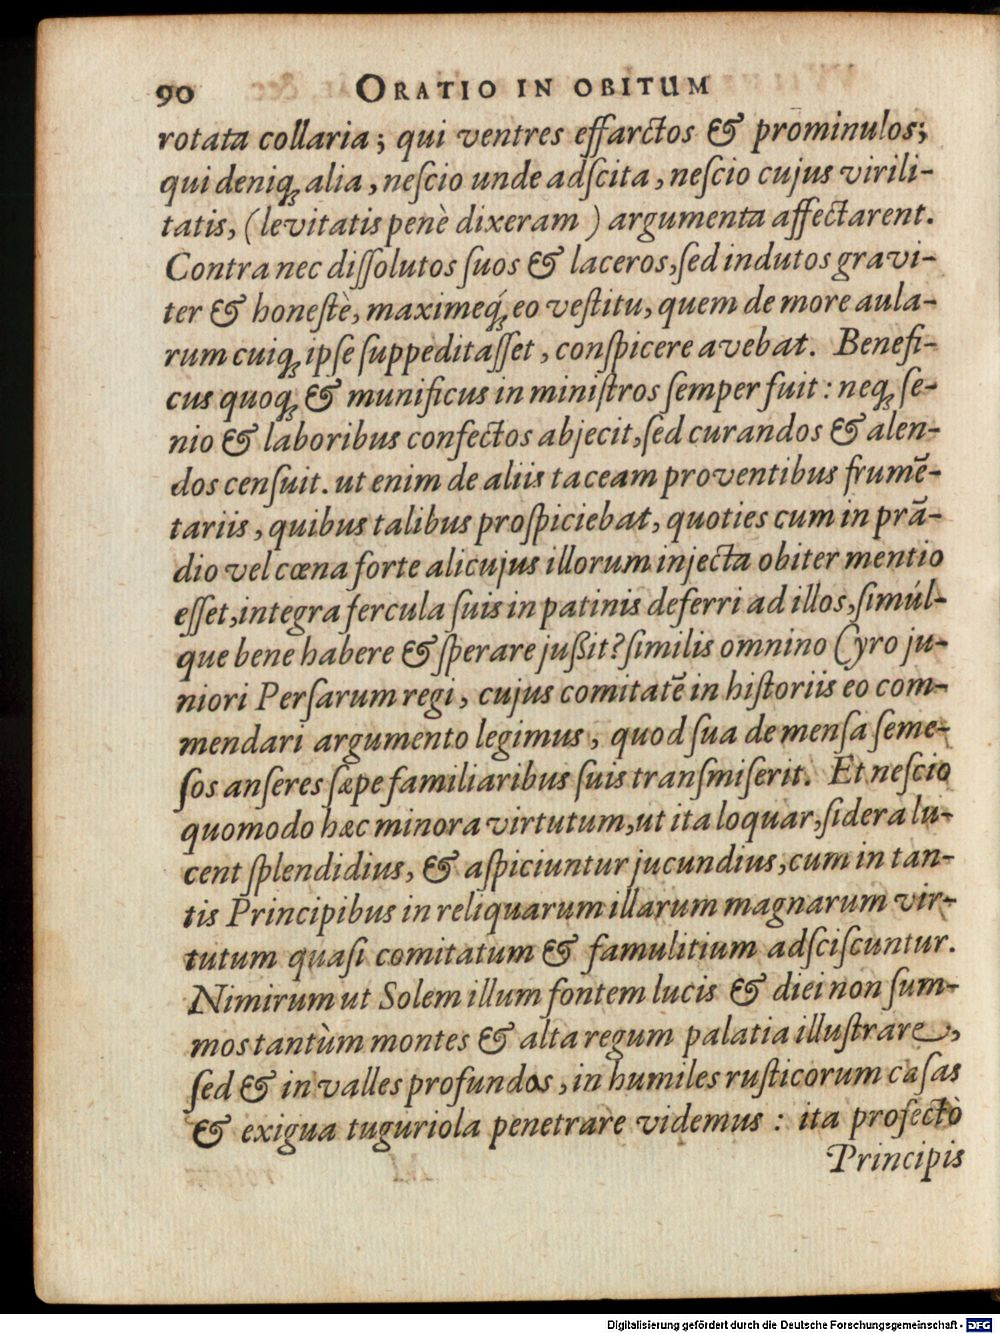 90 ORATIO IN OBITUM
rotata collaria; qui ventres effarctos & prōminulos;
qui deniq; alia, neſcio unde adſcita, neſcio cujus virili-
tatis, (levitatis penè dixeram) argumenta affectarent.
Contra nec diſſolutos ſuos & laceros, ſed indutos gravi-
ter & honeſtè, maximeq́; eo veſtitu, quem de more aula-
rum cuiq; ipſe ſuppeditaſſet, conſpicere avebat. Benefi-
cus quoq; & munificus in miniſtros ſemper fuit: neq; ſe-
nio & laboribus confectos abjecit, ſed curandos & alen-
dos cenſuit. ut enim de aliis taceam proventibus frumē-
tariis, quibus talibus proſpiciebat, quoties cum in prā-
dio vel cœna forte alicujus illorum injecta obiter mentio
eſſet, integra fercula ſuis in patinis deferri ad illos, ſimúl-
que bene habere & ſperare juſsit? ſimilis omnino Cyro ju-
niori Perſarum regi, cujus comitatē in hiſtoriis eo com-
mendari argumento legimus, quod ſua de menſa ſeme-
ſos anſeres ſæpe familiaribus ſuis tranſmiſerit. Et neſcio
quomodo hæc minora virtutum, ut ita loquar, ſidera lu-
cent ſplendidius, & aſpiciuntur jucundius, cum in tan-
tis Principibus in reliquarum illarum magnarum vir-
tutum quaſi comitatum & famulitium adſciſcuntur.
Nimirum ut Solem illum fontem lucis & diei non ſum-
mos tantùm montes & alta regum palatia illuſtrare,
ſed & in valles profundas, in humiles ruſticorum caſas
& exigua tuguriola penetrare videmus: ita profectò
Principis
Digitalisierung gefördert durch die Deutsche Forschungsgemeinschaft - DFG